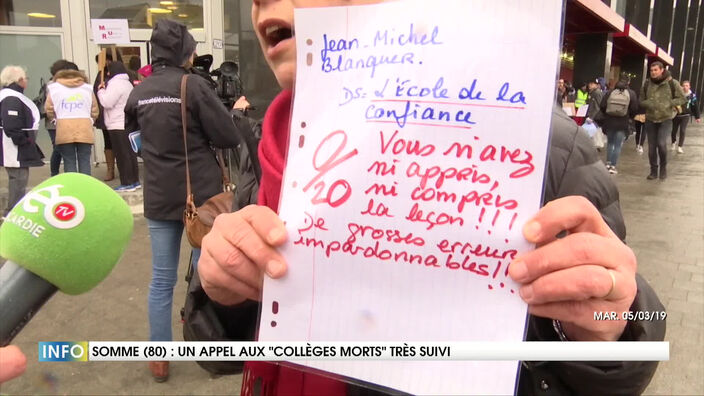 MUR
fcpe
francetélévisions
Jean-Michel
Blanquer.
DS= L'École de la
confiance
0/20
Vous n'avez
ni appris,
ni compris
la leçon !!!
De grosses erreurs
impardonnables!!!
TV
ARDIE
MAR. 05/03/19
INFO
SOMME (80) : UN APPEL AUX "COLLÈGES MORTS" TRÈS SUIVI